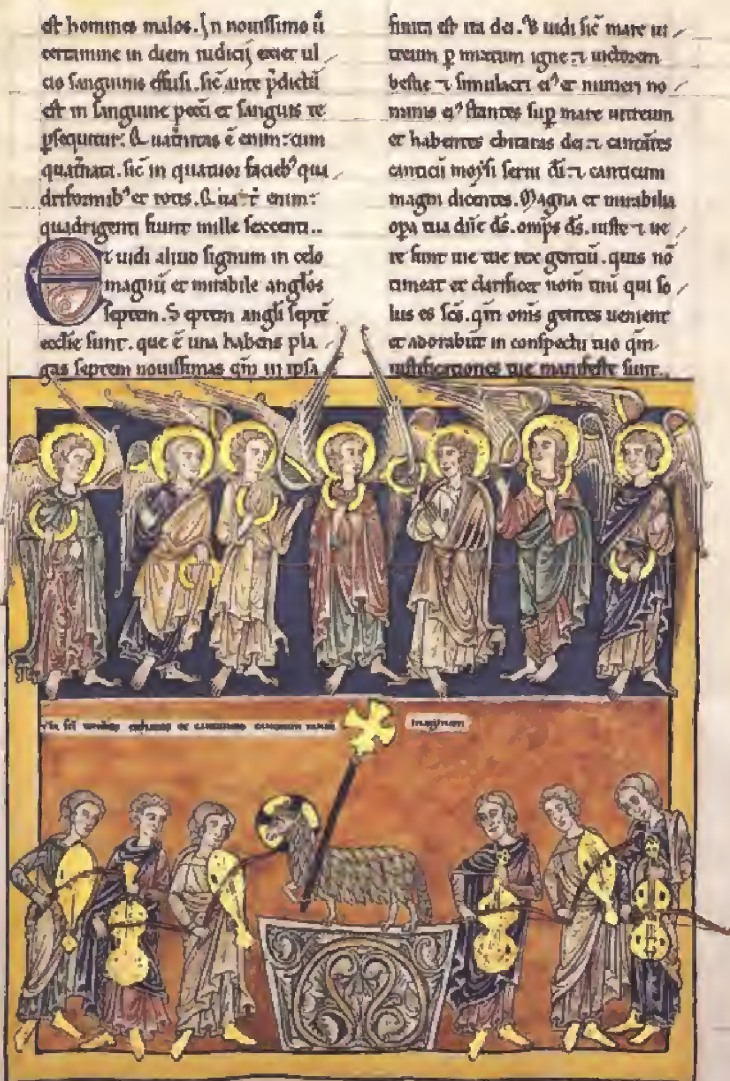 est homines malos. In novissimo ū
certamine in diem iudicij exiet ul
cio sanguinis effusi. sic̄ ante p̄dictū
est in sanguine pecc̄i et sanguis te
ꝑsequitur. Q̄ nit̄as ē enim: cum
quat̄nata. sic̄ in quatuor facieb⁹ qua
driformib⁹ et rotis. enim:
quadringenti fiunt mille sexcenti..
Et uidi aliud signum in celo
magnū et mirabile angl̄os
septem. Septem angl̄i septē
eccl̄ie sunt. que ē una habens pla
gas septem nouissimas qm̄ in ipsa
finita est ira dei. & uidi sic̄ mare ui
treum ꝑ mixtum igne ⁊ uictorem
bestie ⁊ simulacri ei⁹ et numeri no
minis ei⁹ stantes suꝑ mare uitreum
et habentes chitaras dei ⁊ cantātes
canticū moysi serui dī ⁊ canticum
magni dicentes. Magna et mirabilia
oꝑa tua dn̄e ds̄. omīps ds̄. iuste ⁊ ue
re sunt uie tue rex gentiū. quis nō
timeat et clarificet nom̄ tuū qui so
lus es sc̄s. qm̄ om̄s gentes uenient
et adorabūt in conspectu tuo qm̄
iustificationes tue manifeste sunt..
et canticum
magnum